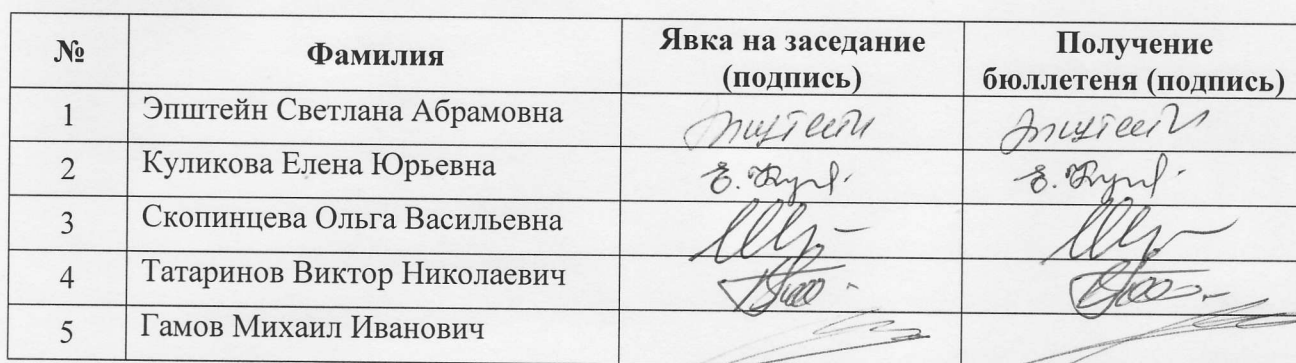 № Фамилия Явка на заседание Получение
(подпись) бюллетеня (подпись)
1 Эпштейн Светлана Абрамовна Эпштейн Эпштейн
2 Куликова Елена Юрьевна
3 Скопинцева Ольга Васильевна
4 Татаринов Виктор Николаевич
5 Гамов Михаил Иванович